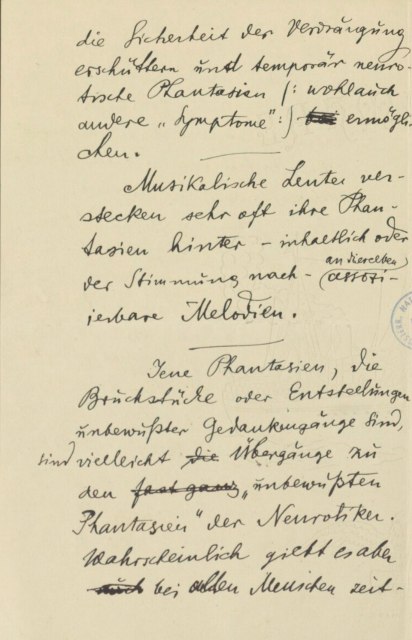 die Sicherheit der Verdrängung
erschüttern und temporär neuro-
tische Phantasien (: wohl auch
andere „Symptome" :) bei ermögli-
chen.
Musikalische Leute ver-
stecken sehr oft ihre Phan-
tasien hinter – inhaltlich oder
der Stimmung nach – an dieselben assozi-
ierbare Melodien.
Jene Phantasien, die
Bruchstücke oder Entstellungen
unbewußter Gedankengänge sind,
sind vielleicht die Übergänge zu
den fast ganz „unbewußten
Phantasien" der Neurotiker.
Wahrscheinlich giebt es aber
auch bei allen Menschen zeit-